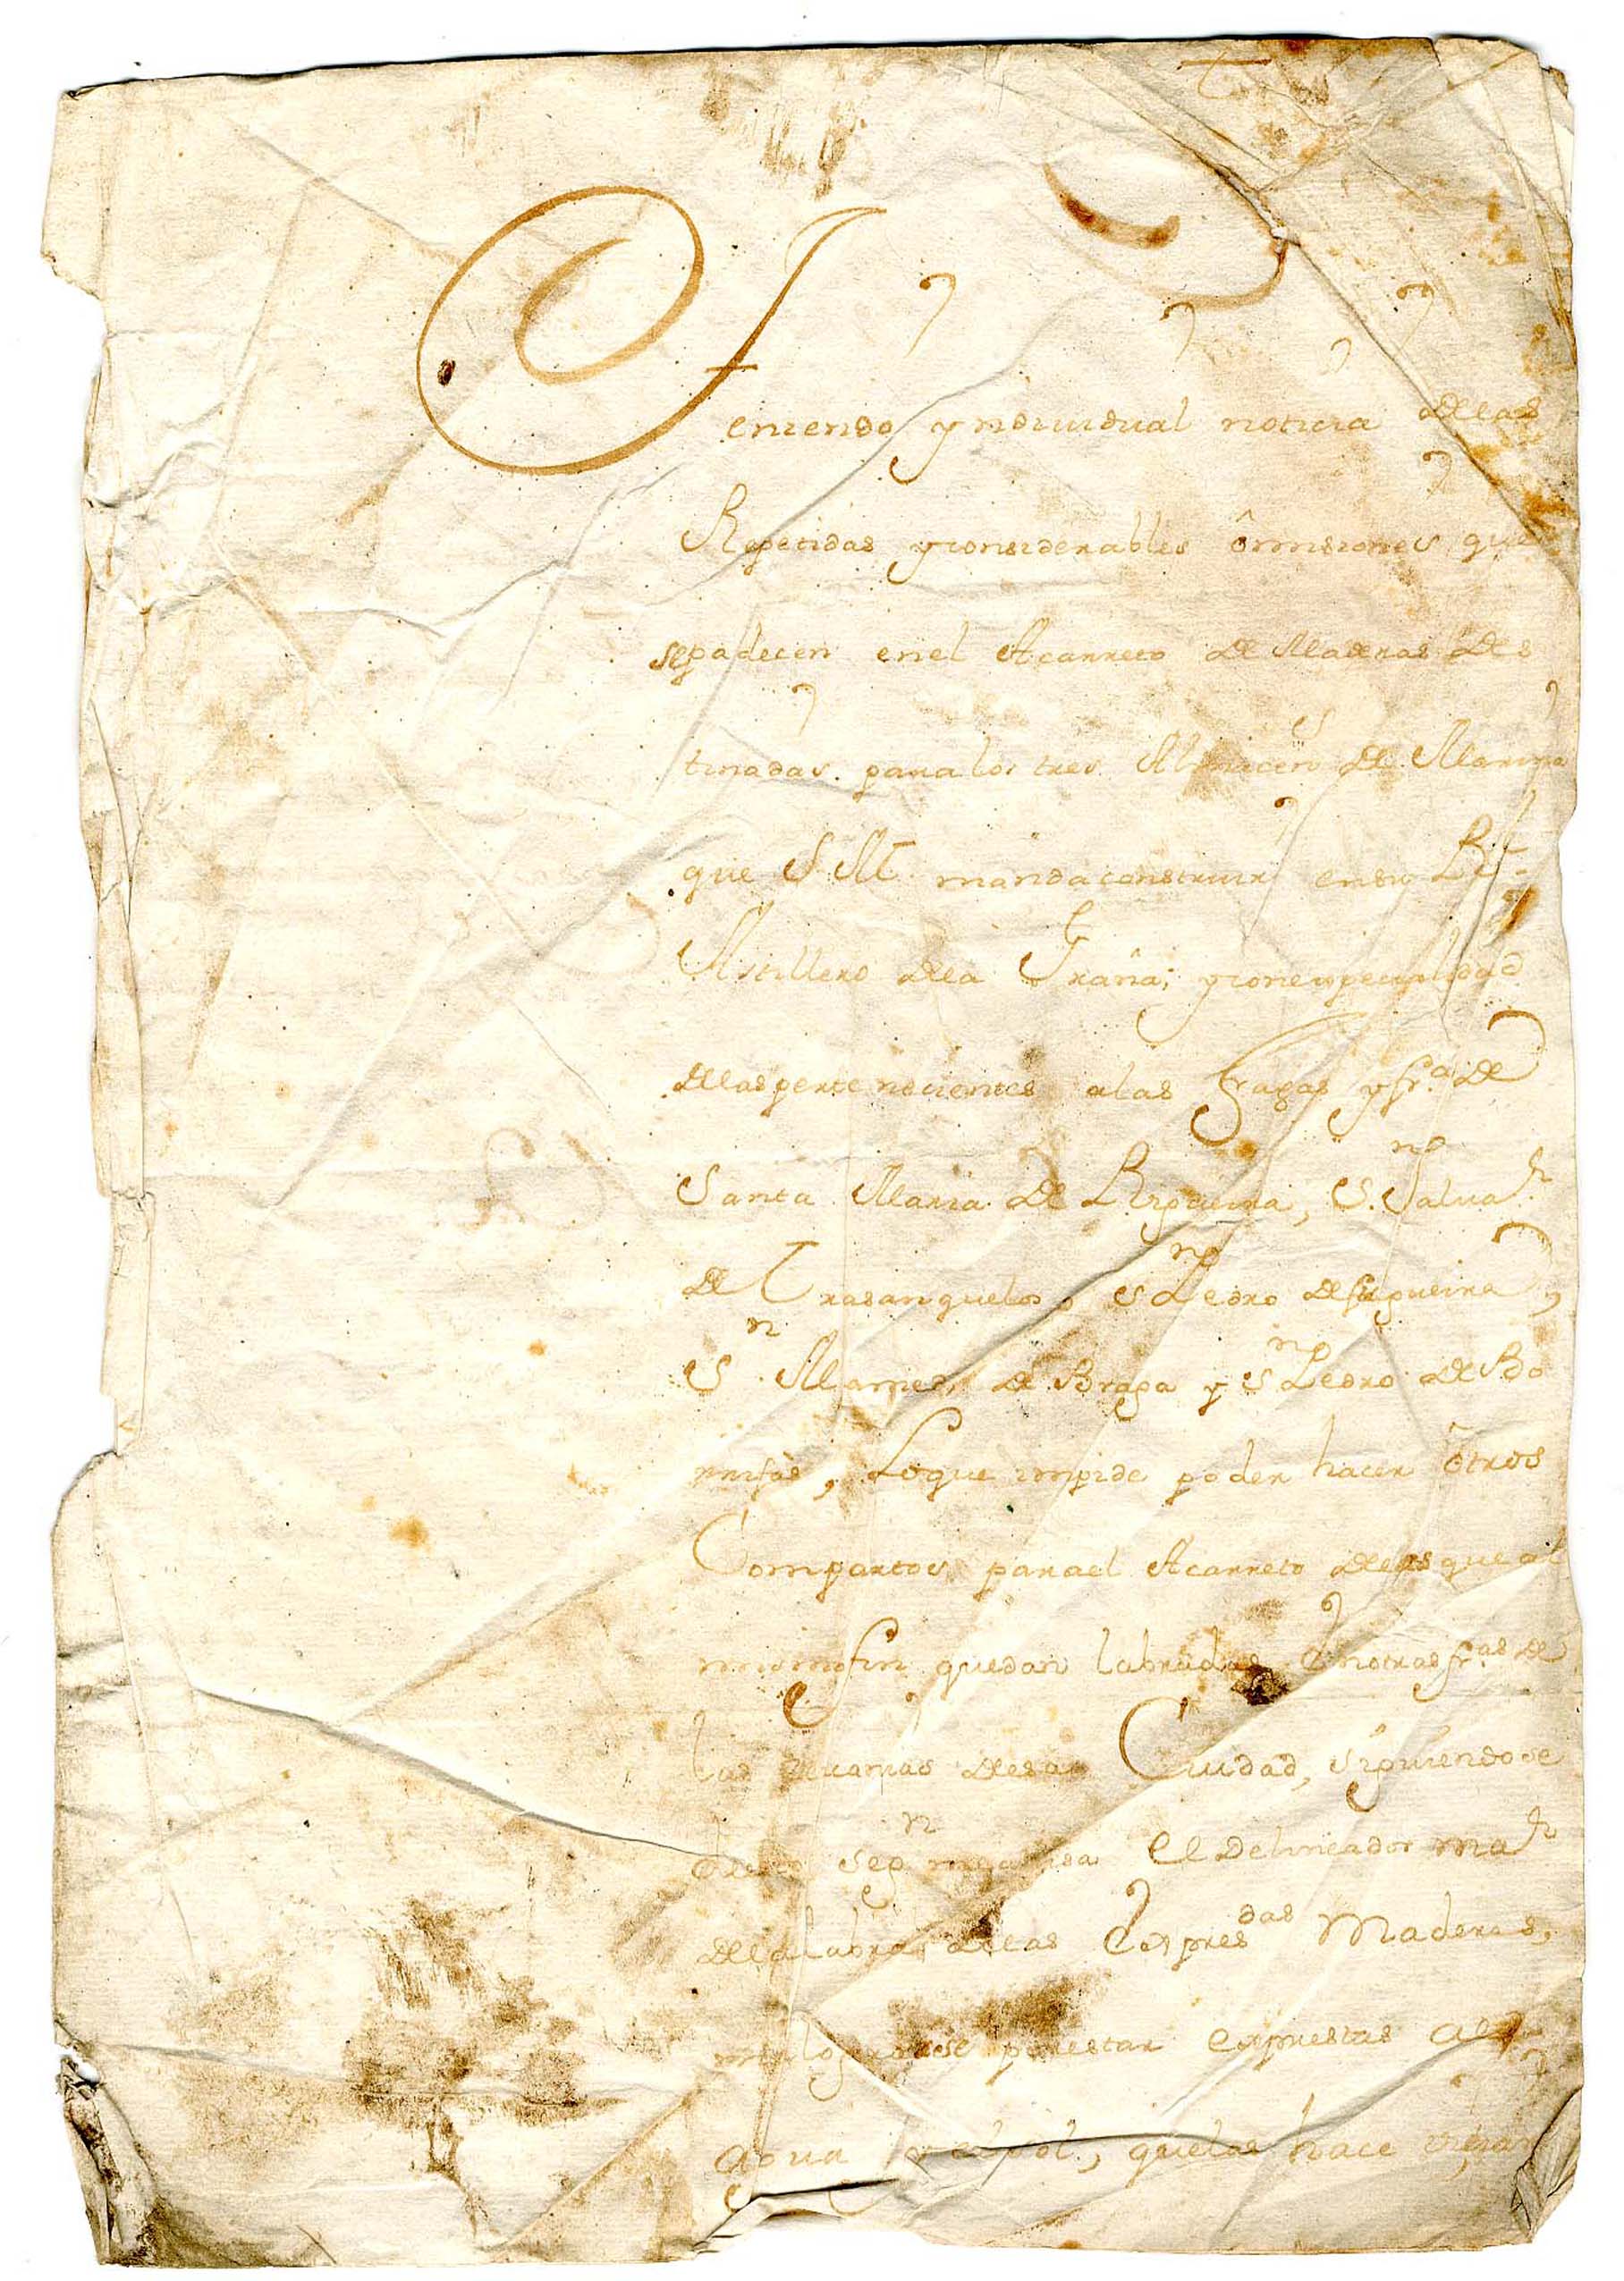 Teniendo yndiuidual noticia delas
Repetidas yconsiderables ômisiones que
sepadecen enel Acarreto de Maderas Des
tinadas paralos tres Almacen.s de Marina
que S. M. mandaconstruir ensu R.l
Astillero dela Graña; yconespecialidad
delaspertenecientes alas Fragas y fr.a de
Santa Maria de Rigueira, S.n Saluad.r
de Trasanquelos, S.n Pedro de
S.n Mamed, de Braga y S.n Pedro de Bo
Loque impide poder hacer ôtros
Compartos parael Acarreto delas que al
mismofin quedan labradas enotras fr.as de
las desa Ciudad, siguiendose
deesto seg.n el Delineador ma.r
dela labra, delas Espres.das Maderas,
malograrse porestar Expuestas al
agua y elsol, quelas hace